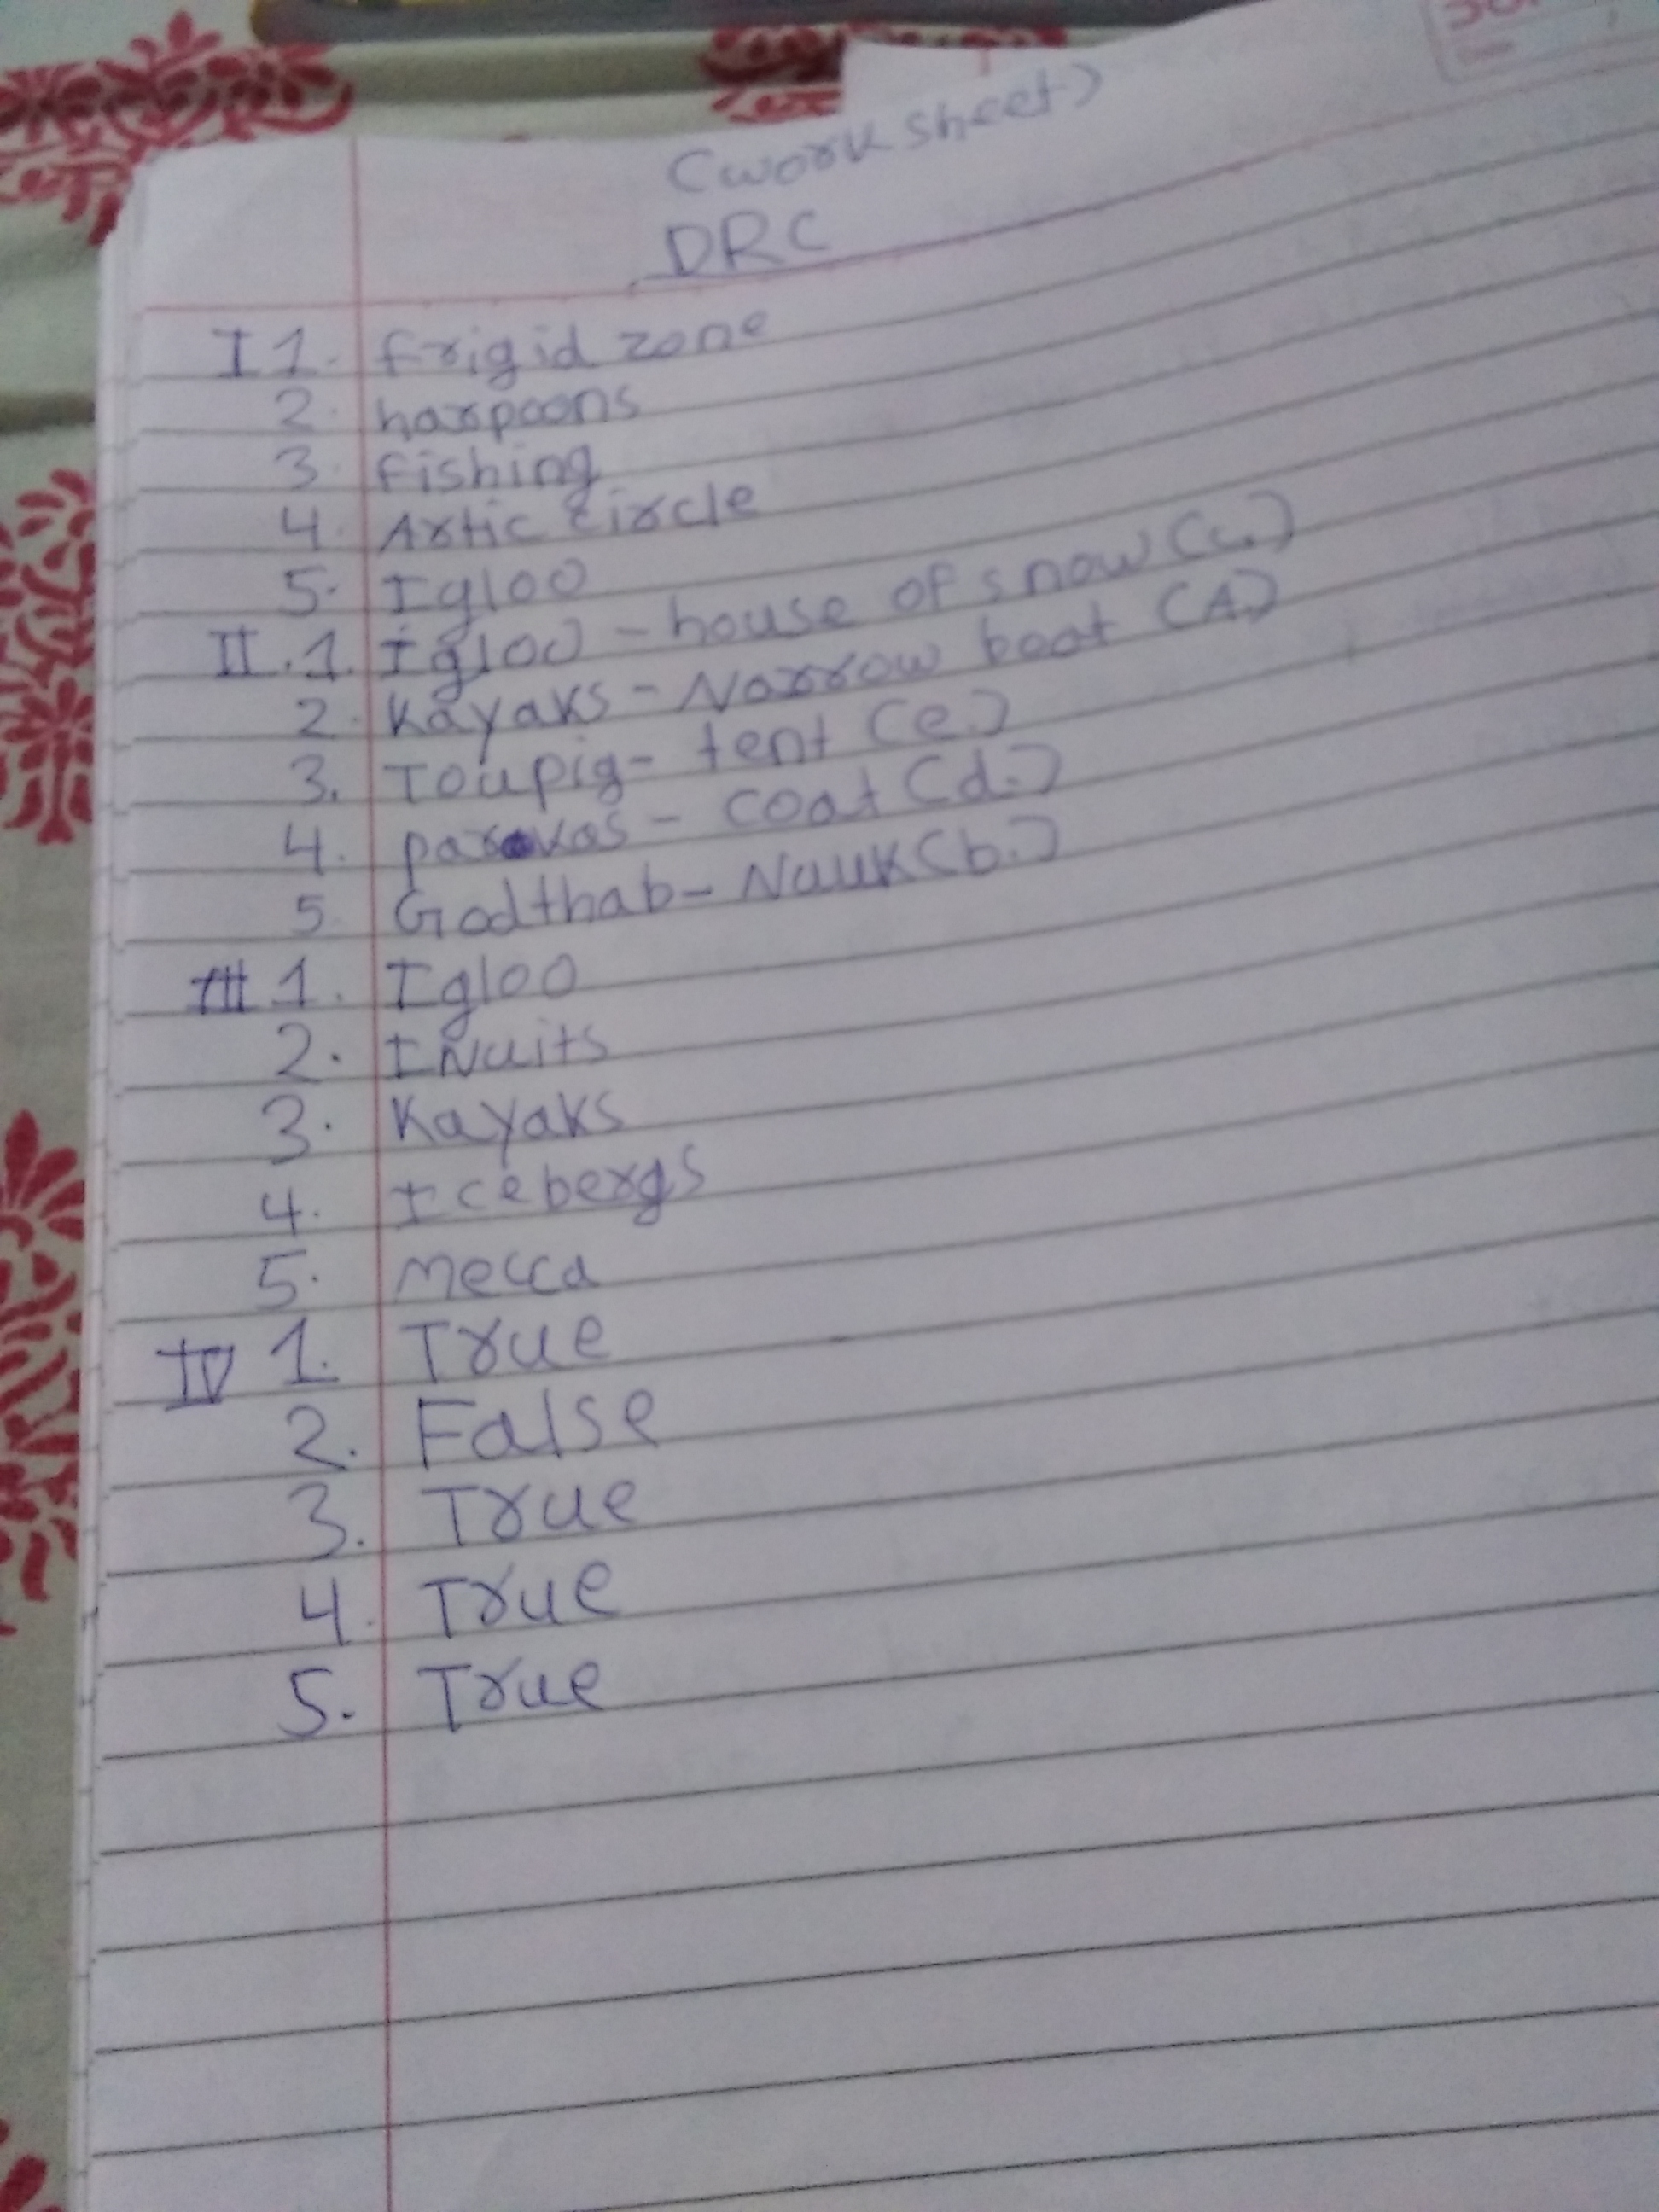 (worksheet)
DRC
I 1. frigid zone
2. harpoons
3. fishing
4. Artic circle
5. Igloo
II.1. Igloo - house of snow (c.)
2. Kayaks - Narrow boat (A)
3. Toupig - tent (e.)
4. parkas - coat (d.)
5. Godthab - Nauk (b.)
III 1. Igloo
2. INuits
3. Kayaks
4. Icebergs
5. Mecca
IV 1. True
2. False
3. True
4. True
5. True